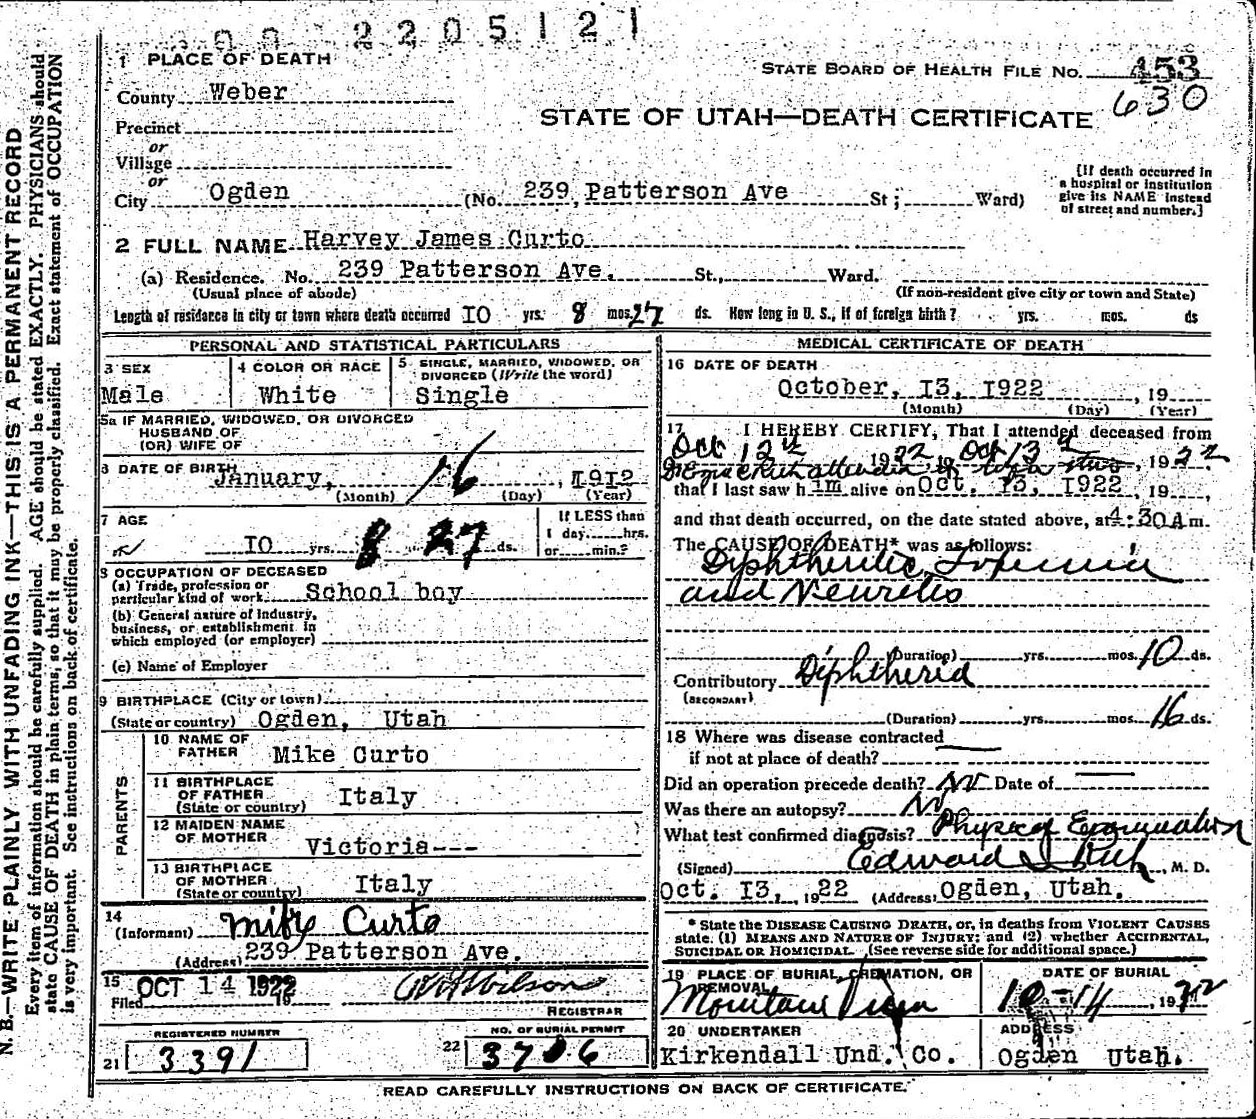 2205121
1 PLACE OF DEATH
STATE BOARD OF HEALTH FILE NO. 453
630
County Weber
STATE OF UTAH—DEATH CERTIFICATE
Precinct
or
Village
or
City Ogden (No. 239, Patterson Ave St; Ward)
[If death occurred in
a hospital or institution
give its NAME instead
of street and number.]
2 FULL NAME Harvey James Curto
(a) Residence. No. 239 Patterson Ave. St., Ward.
(Usual place of abode) (If non-resident give city or town and State)
Length of residence in city or town where death occurred IO yrs. 8 mos. 27 ds. How long in U. S., if of foreign birth? yrs. mos. ds
PERSONAL AND STATISTICAL PARTICULARS
3 SEX
Male
4 COLOR OR RACE
White
5 SINGLE, MARRIED, WIDOWED, OR
DIVORCED (Write the word)
Single
5a IF MARRIED, WIDOWED, OR DIVORCED
HUSBAND OF
(OR) WIFE OF
6 DATE OF BIRTH
January, 16, I9I2
(Month) (Day) (Year)
7 AGE
IO yrs. 8 27 ds.
If LESS than
1 day hrs.
or min.?
8 OCCUPATION OF DECEASED
(a) Trade, profession or
particular kind of work School boy
(b) General nature of industry,
business, or establishment in
which employed (or employer)
(c) Name of Employer
9 BIRTHPLACE (City or town)
(State or country) Ogden, Utah
PARENTS
10 NAME OF
FATHER Mike Curto
11 BIRTHPLACE
OF FATHER
(State or country) Italy
12 MAIDEN NAME
OF MOTHER Victoria---
13 BIRTHPLACE
OF MOTHER
(State or country) Italy
14
(Informant) Mike Curto
(Address) 239 Patterson Ave.
15
Filed OCT 14 1922 Wilson
REGISTRAR
REGISTERED NUMBER
21 3391
NO. OF BURIAL PERMIT
22 3706
MEDICAL CERTIFICATE OF DEATH
16 DATE OF DEATH
October, I3, I922, 19
(Month) (Day) (Year)
17 I HEREBY CERTIFY, That I attended deceased from
Oct 12th 1922 to Oct 13, 1922
that I last saw him alive on Oct. I3, I922, 19
and that death occurred, on the date stated above, at 4:30 A m.
The CAUSE OF DEATH* was as follows:
Diphtheritic Toxemia
and Neuritis
(Duration) yrs. mos. 10 ds.
Contributory Diphtheria
(SECONDARY)
(Duration) yrs. mos. 16 ds.
18 Where was disease contracted
if not at place of death?
Did an operation precede death? No Date of
Was there an autopsy? No
What test confirmed diagnosis? Physical Examination
(Signed) Edward I Rich, M. D.
Oct. I3, 1922 (Address) Ogden, Utah.
* State the DISEASE CAUSING DEATH, or, in deaths from VIOLENT CAUSES
state (1) MEANS AND NATURE OF INJURY; and (2) whether ACCIDENTAL,
SUICIDAL OR HOMICIDAL. (See reverse side for additional space.)
19 PLACE OF BURIAL, CREMATION, OR
REMOVAL
Mountain View
DATE OF BURIAL
10-14, 1922
20 UNDERTAKER
Kirkendall Und. Co.
ADDRESS
Ogden Utah.
READ CAREFULLY INSTRUCTIONS ON BACK OF CERTIFICATE.
N. B.—WRITE PLAINLY WITH UNFADING INK—THIS IS A PERMANENT RECORD
Every item of information should be carefully supplied. AGE should be stated EXACTLY. PHYSICIANS should
state CAUSE OF DEATH in plain terms, so that it may be properly classified. Exact statement of OCCUPATION
is very important. See instructions on back of certificate.